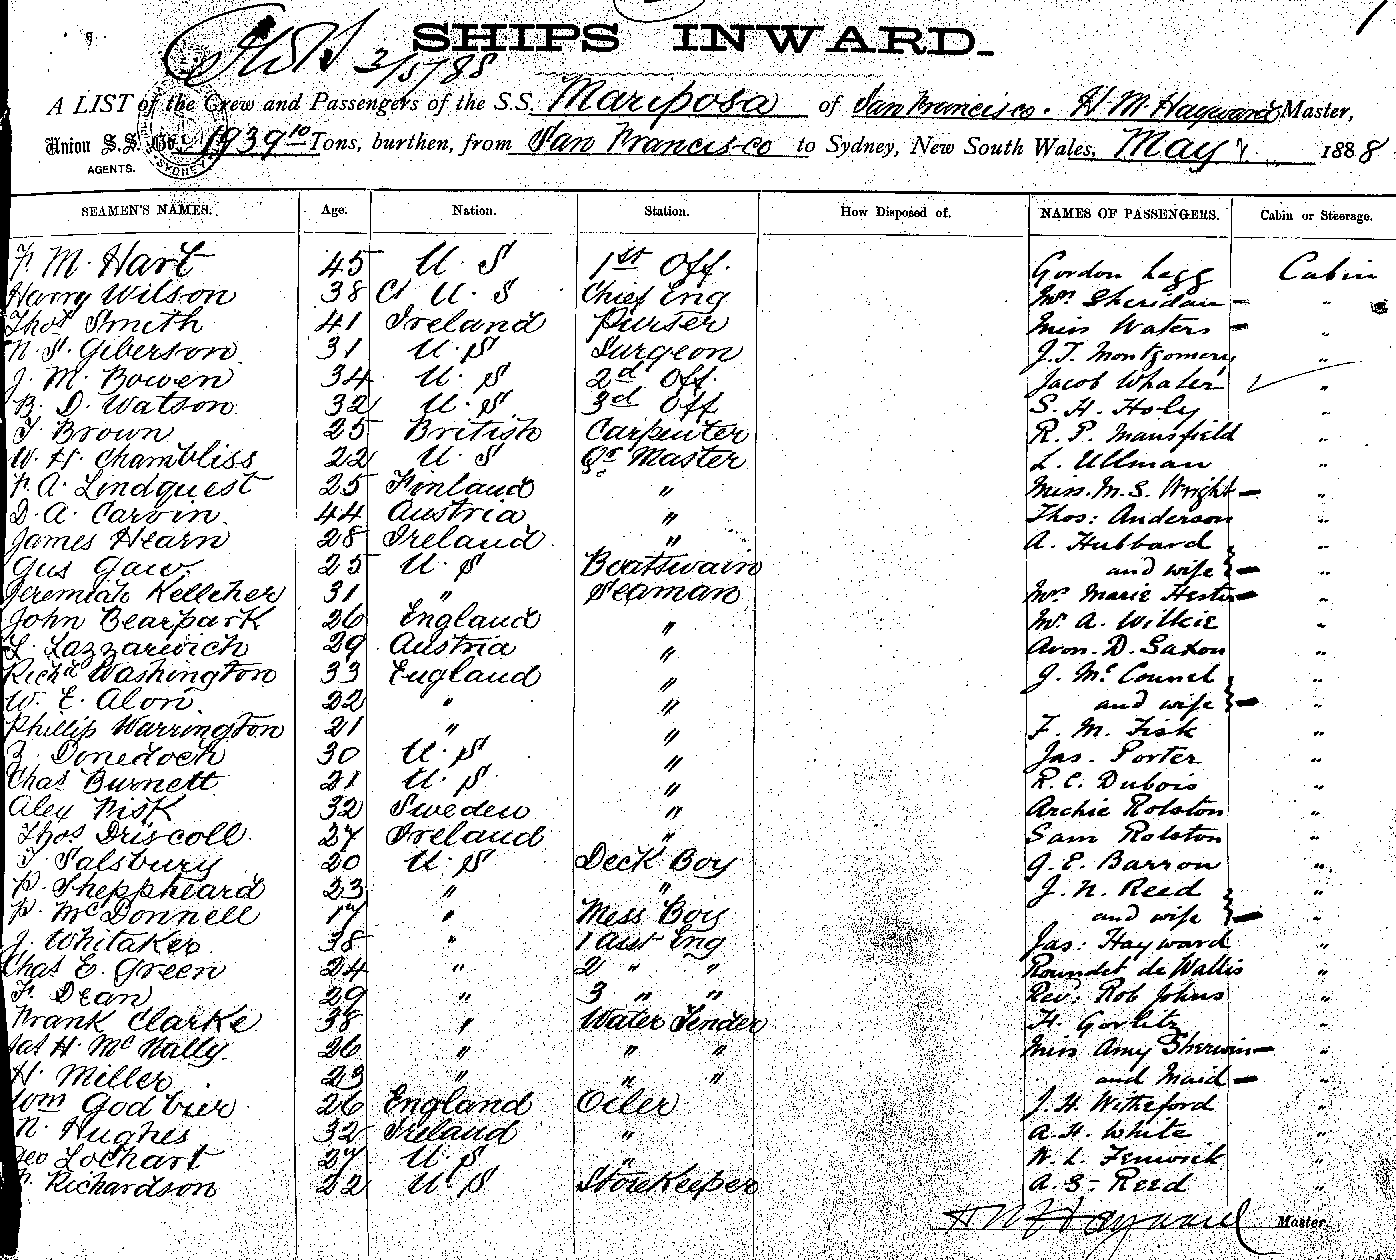 SHIPS INWARD.
2/5/88
A LIST of the Crew and Passengers of the S.S. Mariposa of San Francisco. H. M. Hayward Master,
Union S.S. Co. 1939 10 Tons, burthen, from San Francisco to Sydney, New South Wales, May 1888
AGENTS.
SEAMEN'S NAMES. Age. Nation. Station. How Disposed of. NAMES OF PASSENGERS. Cabin or Steerage.
F. M. Hart 45 U. S 1st Off. Gordon Legg Cabin
Harry Wilson 38 U. S Chief Eng Mrs. Sheridan — "
Thos Smith 41 Ireland Purser Miss Waters — "
N. S. Giberson 31 U. S Surgeon J. T. Montgomery "
J. M. Bowen 34 U. S 2d Off. Jacob Whaler "
B. D. Watson 32 U. S 3d Off S. H. Holy "
T. Brown 25 British Carpenter R. P. Mansfield "
W. H. Chambliss 22 U. S Qr Master L. Ullman "
F. A. Lindquest 25 Finland " Miss. M. S. Wright — "
D. A. Carvin 44 Austria " Thos: Anderson "
James Hearn 28 Ireland " A. Hubbard "
Gus Gaw 25 U. S Boatswain and wife } — "
Jeremiah Kelleher 31 " Seaman Mrs Marie Hester — "
John Bearpark 26 England " Mr A. Wilkie "
L. Lazzarivich 29 Austria " Avon. D. Saxon "
Richd Washington 33 England " J. Mc Counel "
W. E. Alon. 22 " " and wife } — "
Phillip Warrington 21 " " F. M. Fisk "
Donedoch 30 U. S " Jas. Porter "
Chas Burnett 21 U. S " R. C. Dubois "
Alex Fisk 32 Sweden " Archie Rolston "
Thos Driscoll 27 Ireland " Sam Rolston "
T Salsbury 20 U. S Deck Boy J. E. Barron "
P. Sheppheard 23 " " J. N. Reed "
P. McDonnell 17 " Mess Boy and wife } — "
J. Whitaker 38 " 1 Asst Eng Jas: Hayward "
Chas E. Green 24 " 2 " " Roundet de Wallis "
F. Dean 29 " 3 " " Rev: Rob Johns "
Frank Clarke 38 " Water Tender H. Gorlitz "
Jas H. McNally 26 " " " Miss Amy Sherwin — "
H. Miller 23 " " " and Maid — "
Wm Godbier 26 England Oiler J. H. Witheford "
N. Hughes 32 Ireland " A. H. White "
Geo Lochart 27 U. S " W. L. Fenwick "
Richardson 22 U. S Storekeeper A. S. Reed "
H M Hayward Master.